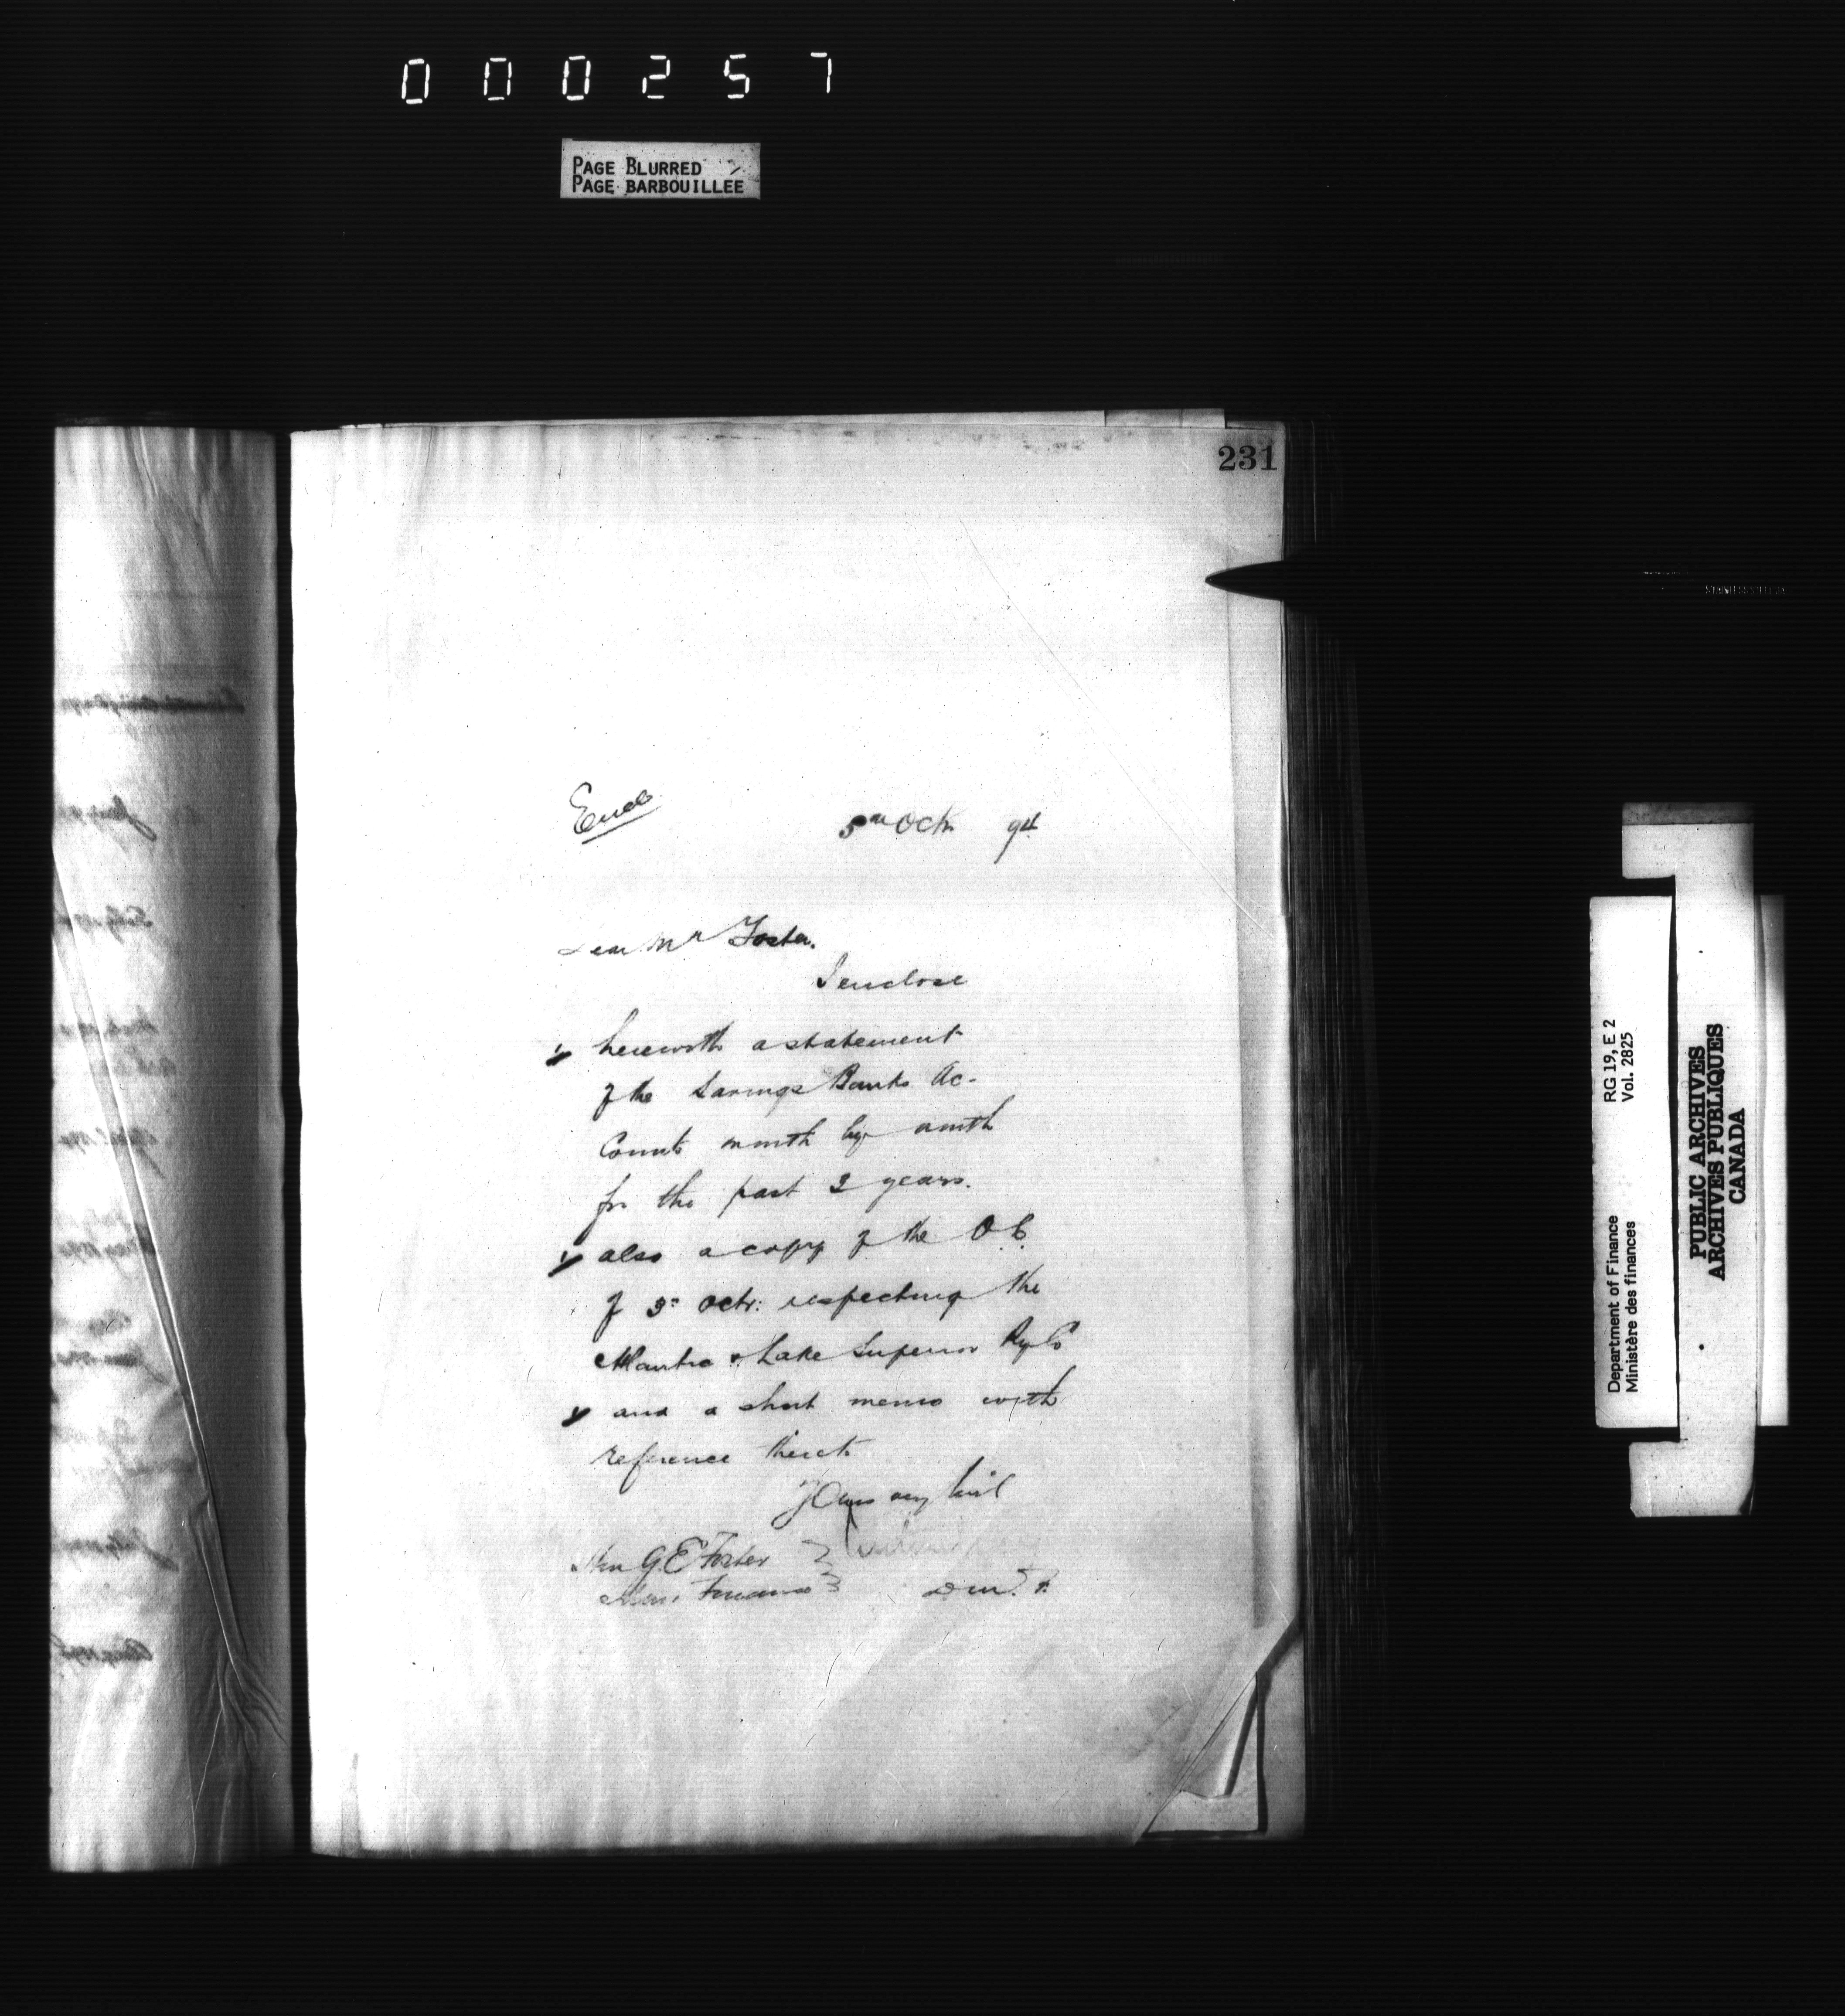 000257
PAGE BLURRED
PAGE BARBOUILLEE
231
Encls
5th Octr 94
Dear Mr Foster.
I enclose
herewith a statement
of the Savings Banks Ac-
counts month by month
for the past 2 years.
also a copy of the O.C.
of 3d Octr: respecting the
Atlantic & Lake Superior Ry Co
and a short memo with
reference thereto
Yours very truly
Hon G.E Foster
Min. Finance
D.M.F.
RG 19, E 2
Vol. 2825
Department of Finance
Ministère des finances
PUBLIC ARCHIVES
ARCHIVES PUBLIQUES
CANADA